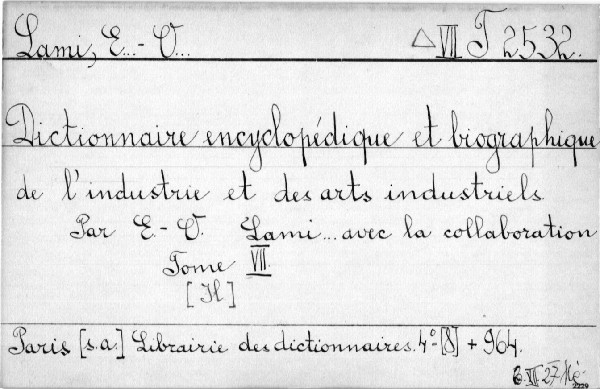 Lami, E..-O... △ VII T 2532.
Dictionnaire encyclopédique et biographique
de l'industrie et des arts industriels.
Par E.-O. Lami... avec la collaboration
Tome VII.
Paris [s.a.] Librairie des dictionnaires. 4° [8] + 964.